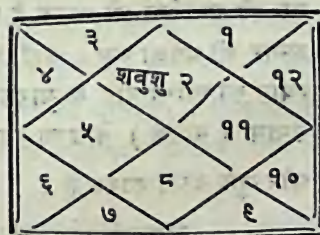 ३ १
४ शवुशु २ १२
५ ११
६ ८ १०
७ ९